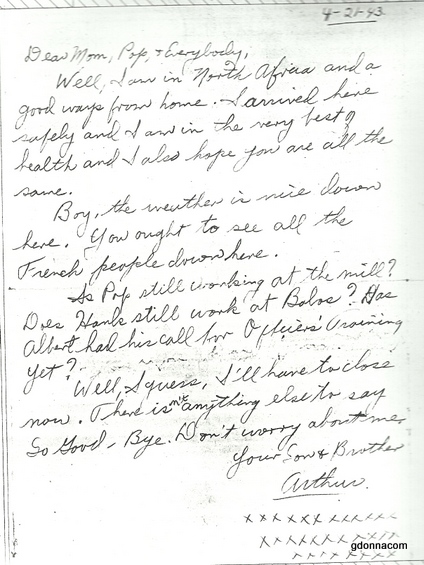 4-21-43.
Dear Mom, Pop, & Everybody,
Well, I am in North Africa and a
good ways from home. I arrived here
safely and I am in the very best of
health and I also hope you are all the
same.
Boy, the weather is nice down
here. You ought to see all the
French people down here.
Is Pop still working at the mill?
Does Hank still work at Bobos? Has
Albert had his call for Officers' Training
yet?
Well, I guess, I'll have to close
now. There isn't anything else to say
So Good-Bye. Don't worry about me.
Your Son & Brother
Arthur.
xxxxxxxxxxxxx
xxxxxxxxxxx
xxxxxxxx
gdonnacom